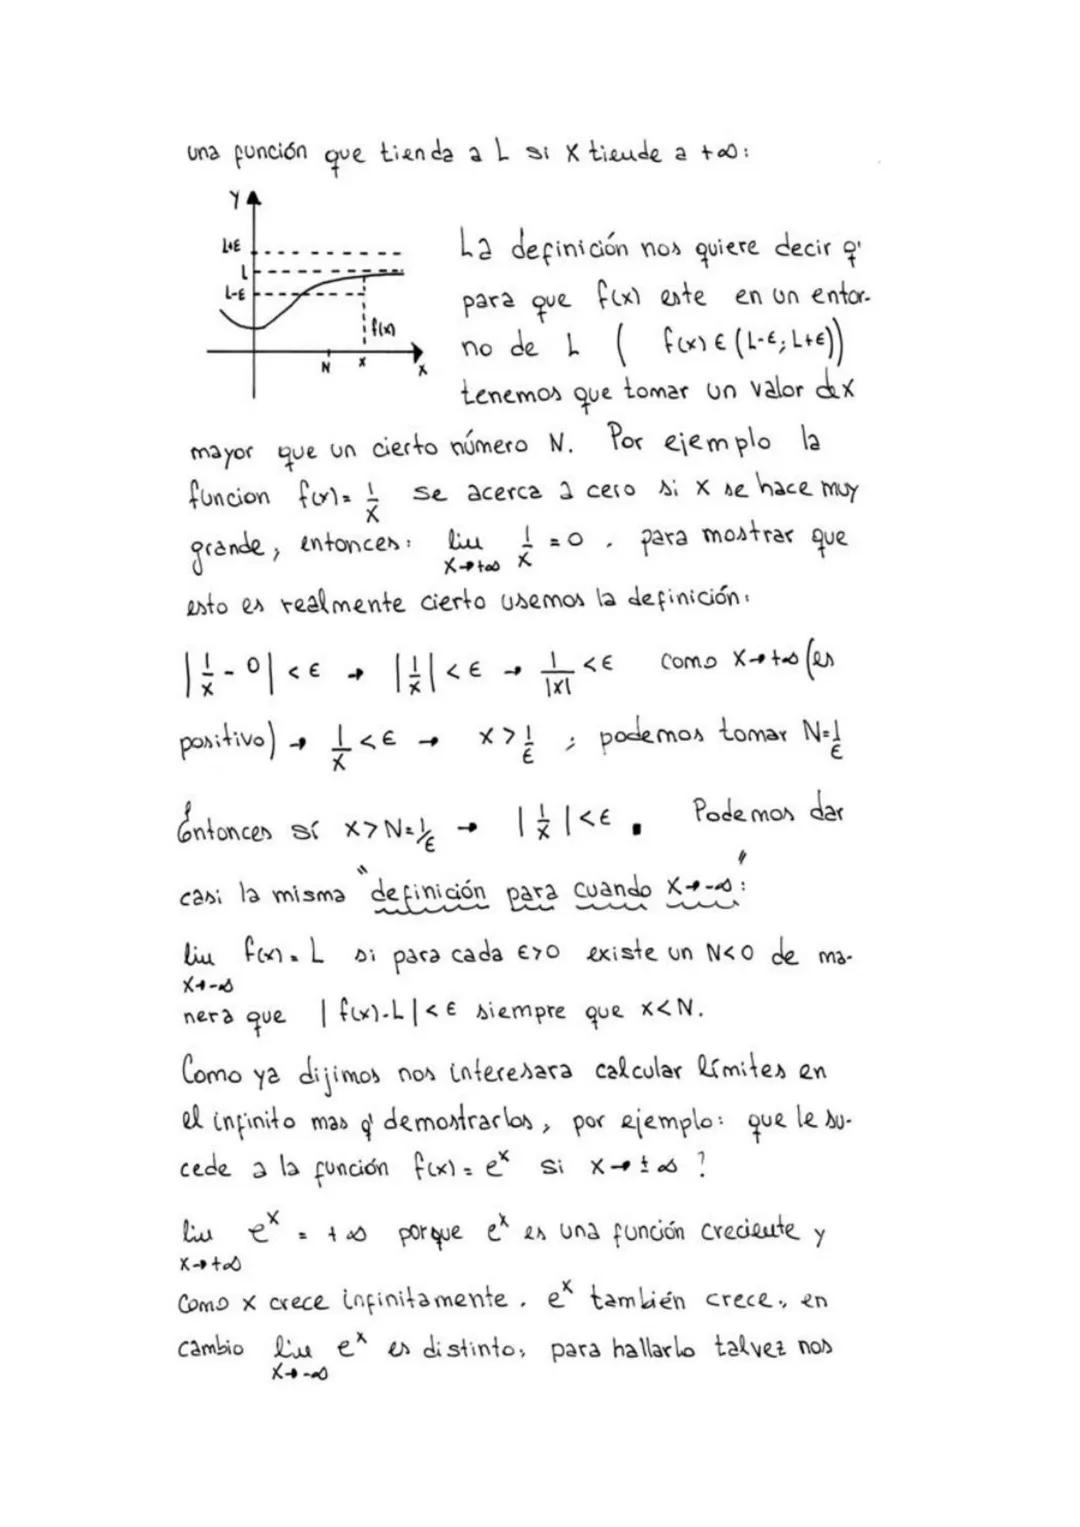 una función que tienda a L si x tiende a +∞:
Y
L+ε
L
L-ε
f(x)
N
x
X
La definición nos quiere decir q'
para que f(x) este en un entor-
no de L ( f(x) ∈ (L-ε; L+ε))
tenemos que tomar un valor de x
mayor que un cierto número N. Por ejemplo la
funcion f(x) = 1/x se acerca a cero si x se hace muy
grande, entonces: lim x→+∞ 1/x = 0. para mostrar que
esto es realmente cierto usemos la definición:
|1/x - 0| < ε → |1/x| < ε → 1/|x| < ε como x→+∞ (es
positivo) → 1/x < ε → x > 1/ε ; podemos tomar N=1/ε
Entonces sí x > N=1/ε → |1/x| < ε. Podemos dar
casi la misma "definición para cuando x→-∞":
lim x→-∞ f(x) = L si para cada ε>0 existe un N<0 de ma-
nera que |f(x)-L| < ε siempre que x<N.
Como ya dijimos nos interesara calcular límites en
el infinito mas q' demostrarlos, por ejemplo: que le su-
cede a la función f(x) = e^x si x→±∞ ?
lim x→+∞ e^x = +∞ porque e^x es una función creciente y
como x crece infinitamente, e^x también crece, en
cambio lim x→-∞ e^x es distinto, para hallarlo talvez nos